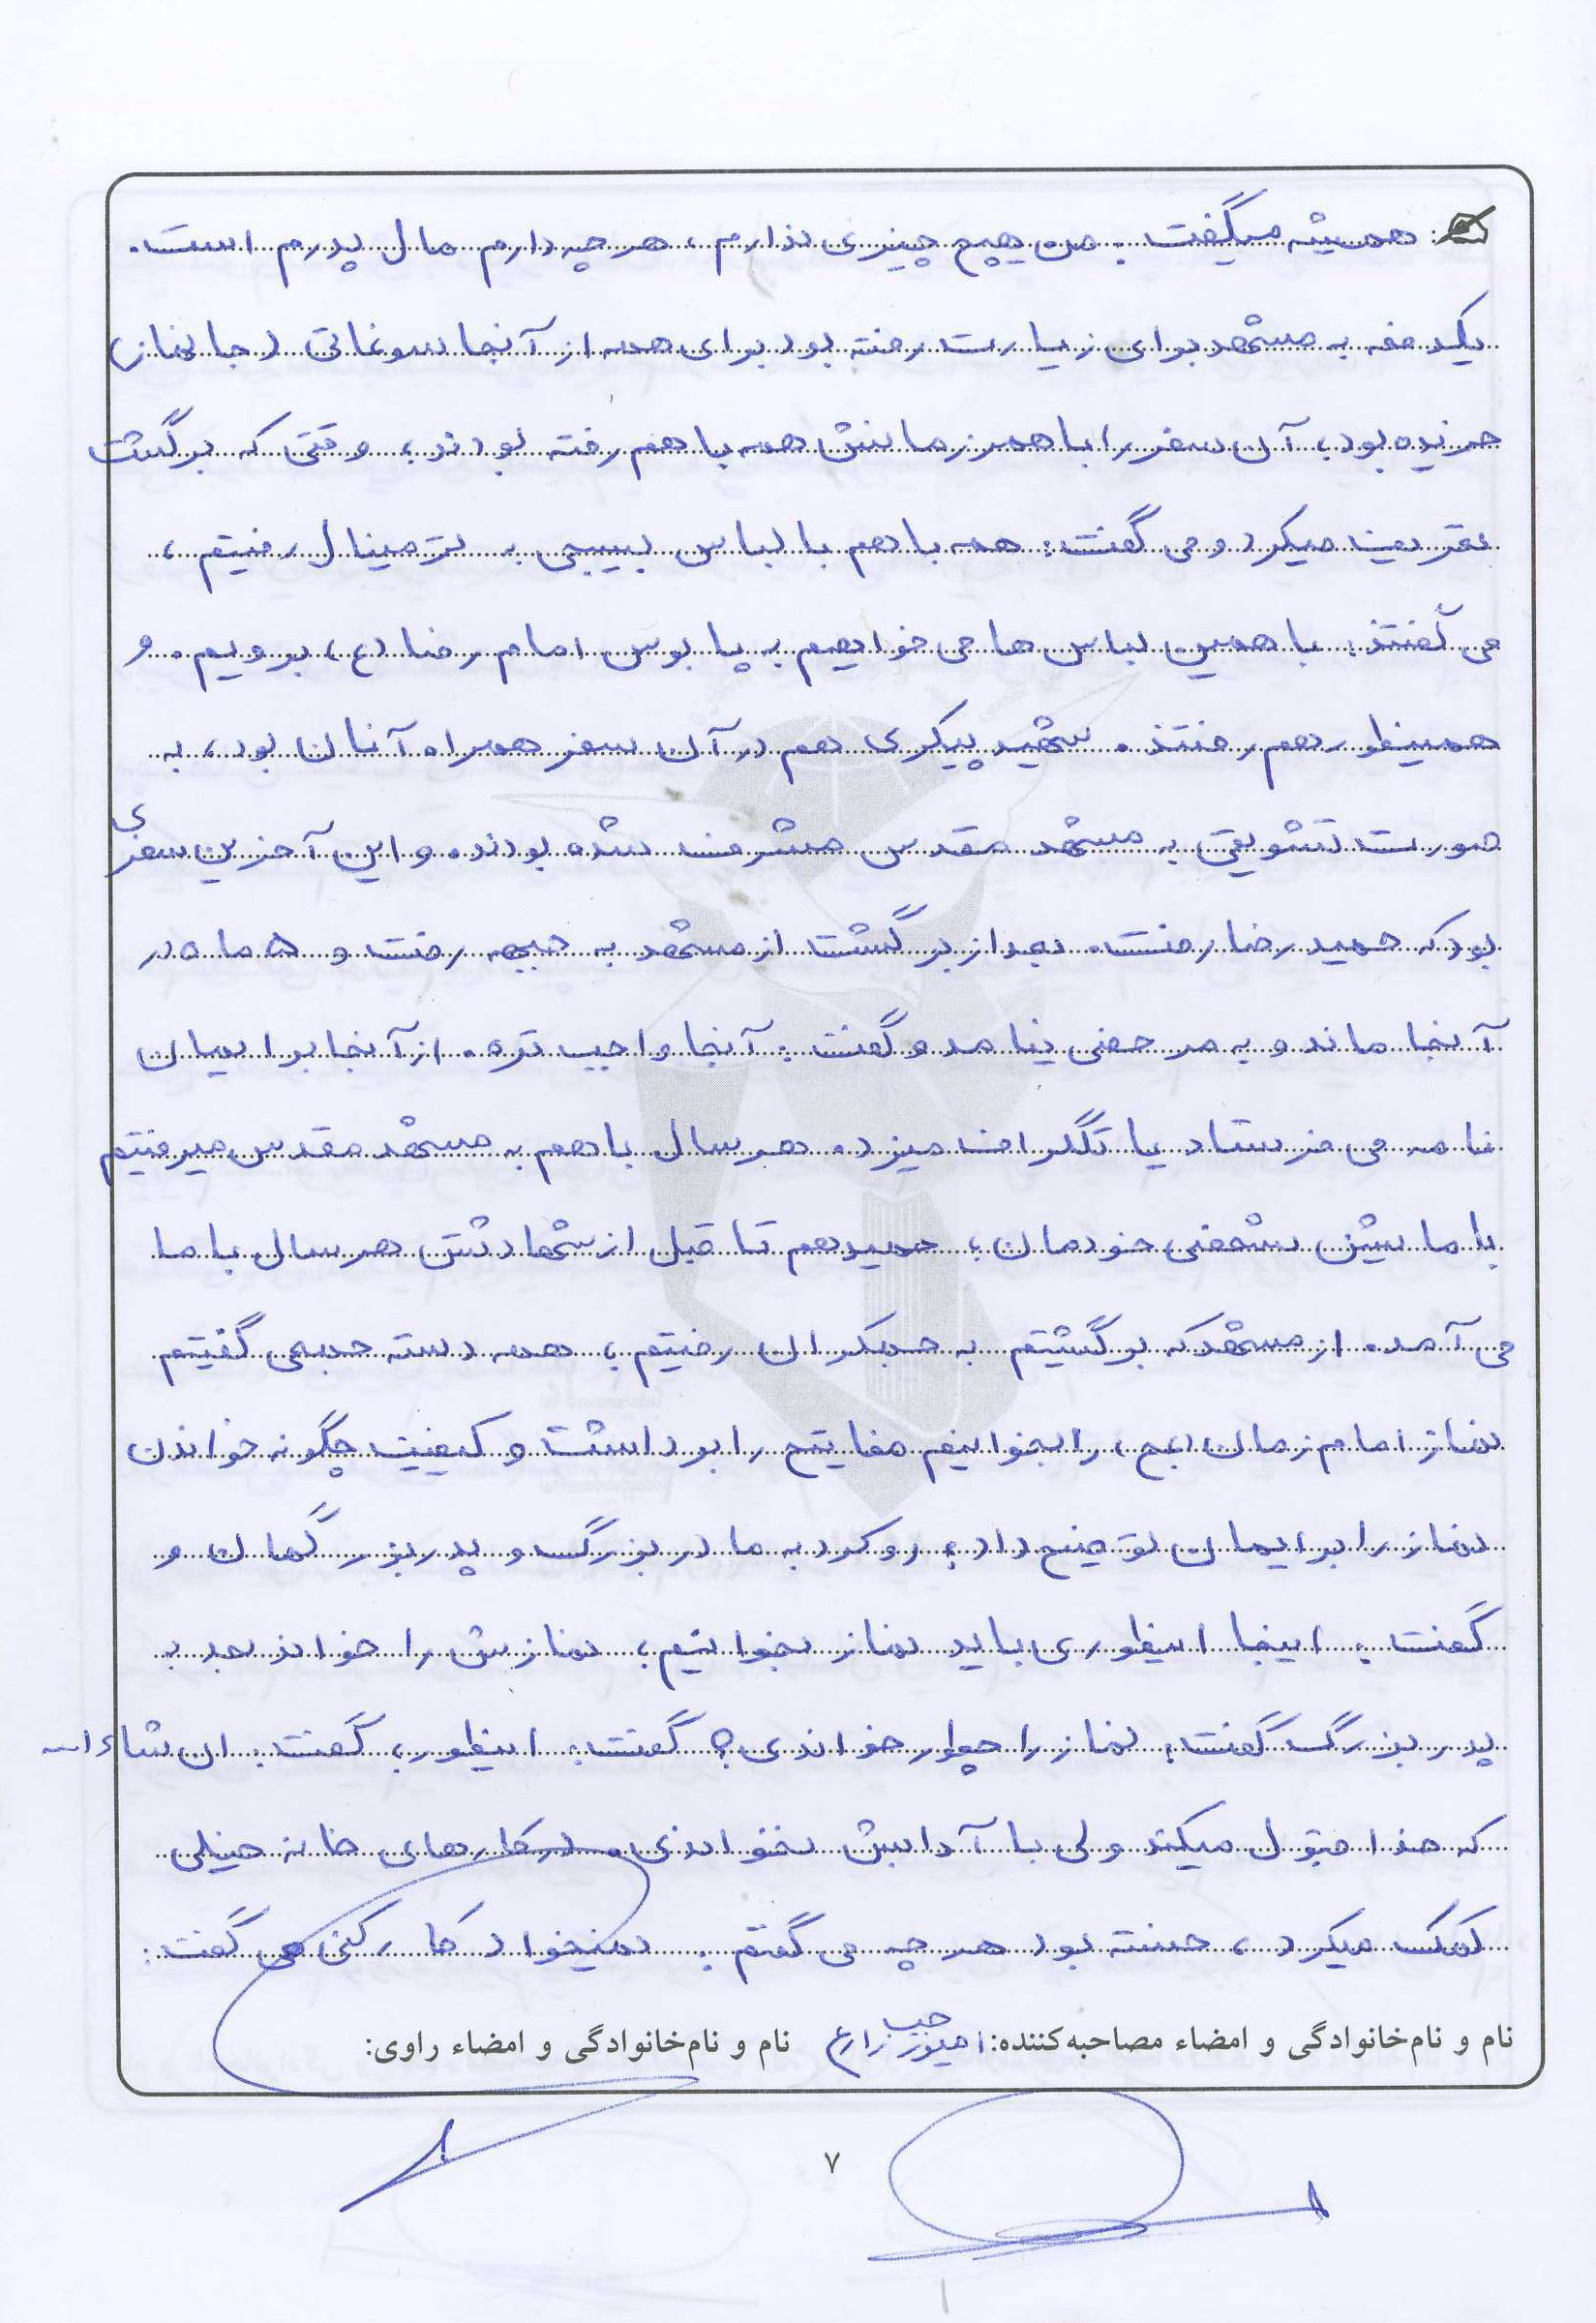 همیشه میگفت: من هیچ چیزی ندارم، هر چه دارم مال پدرم است.
یکدفعه به مشهد برای زیارت رفته بود برای همه از آنجا سوغاتی (جانماز)
خریده بود، آن سفر را با همرزمانش همه با هم رفته بودند، وقتی که برگشت
تعریف میکرد و می گفت: همه با هم با لباس بسیجی به ترمینال رفتیم،
می گفتند: با همین لباس ها می خواهیم به پا بوس امام رضا (ع) برویم. و
همینطور هم رفتند. شهید پیکری هم در آن سفر همراه آنان بود، به
صورت تشویقی به مشهد مقدس مشرف شده بودند. و این آخرین سفری
بود که حمید رضا رفت. بعد از برگشت از مشهد به جبهه رفت و ۵ ماه در
آنجا ماند و به مرخصی نیامد و گفت: آنجا واجب تره. از آنجا برایمان
نامه می فرستاد یا تلگراف میزد. هر سال با هم به مشهد مقدس میرفتیم
با ماشین شخصی خودمان، حمید هم تا قبل از شهادتش هر سال با ما
می آمد. از مشهد که برگشتیم به جمکران رفتیم، همه دسته جمعی گفتیم
نماز امام زمان (عج) را بخوانیم مفاتیح را برداشت و کیفیت چگونه خواندن
نماز را برایمان توضیح داد، رو کرد به مادربزرگ و پدربزرگمان و
گفت: اینجا اینطوری باید نماز بخوانیم، نمازش را خواند بعد به
پدربزرگ گفت: نماز را چطور خواندی؟ گفت: اینطور، گفت: ان شاءا...
که خدا قبول میکند ولی با آدابش نخواندی. در کارهای خانه خیلی
کمک میکرد، خسته بود هر چه می گفتم: نمیخواد کار کنی می گفت:
نام و نام‌خانوادگی و امضاء مصاحبه‌کننده: نام و نام‌خانوادگی و امضاء راوی:
۷